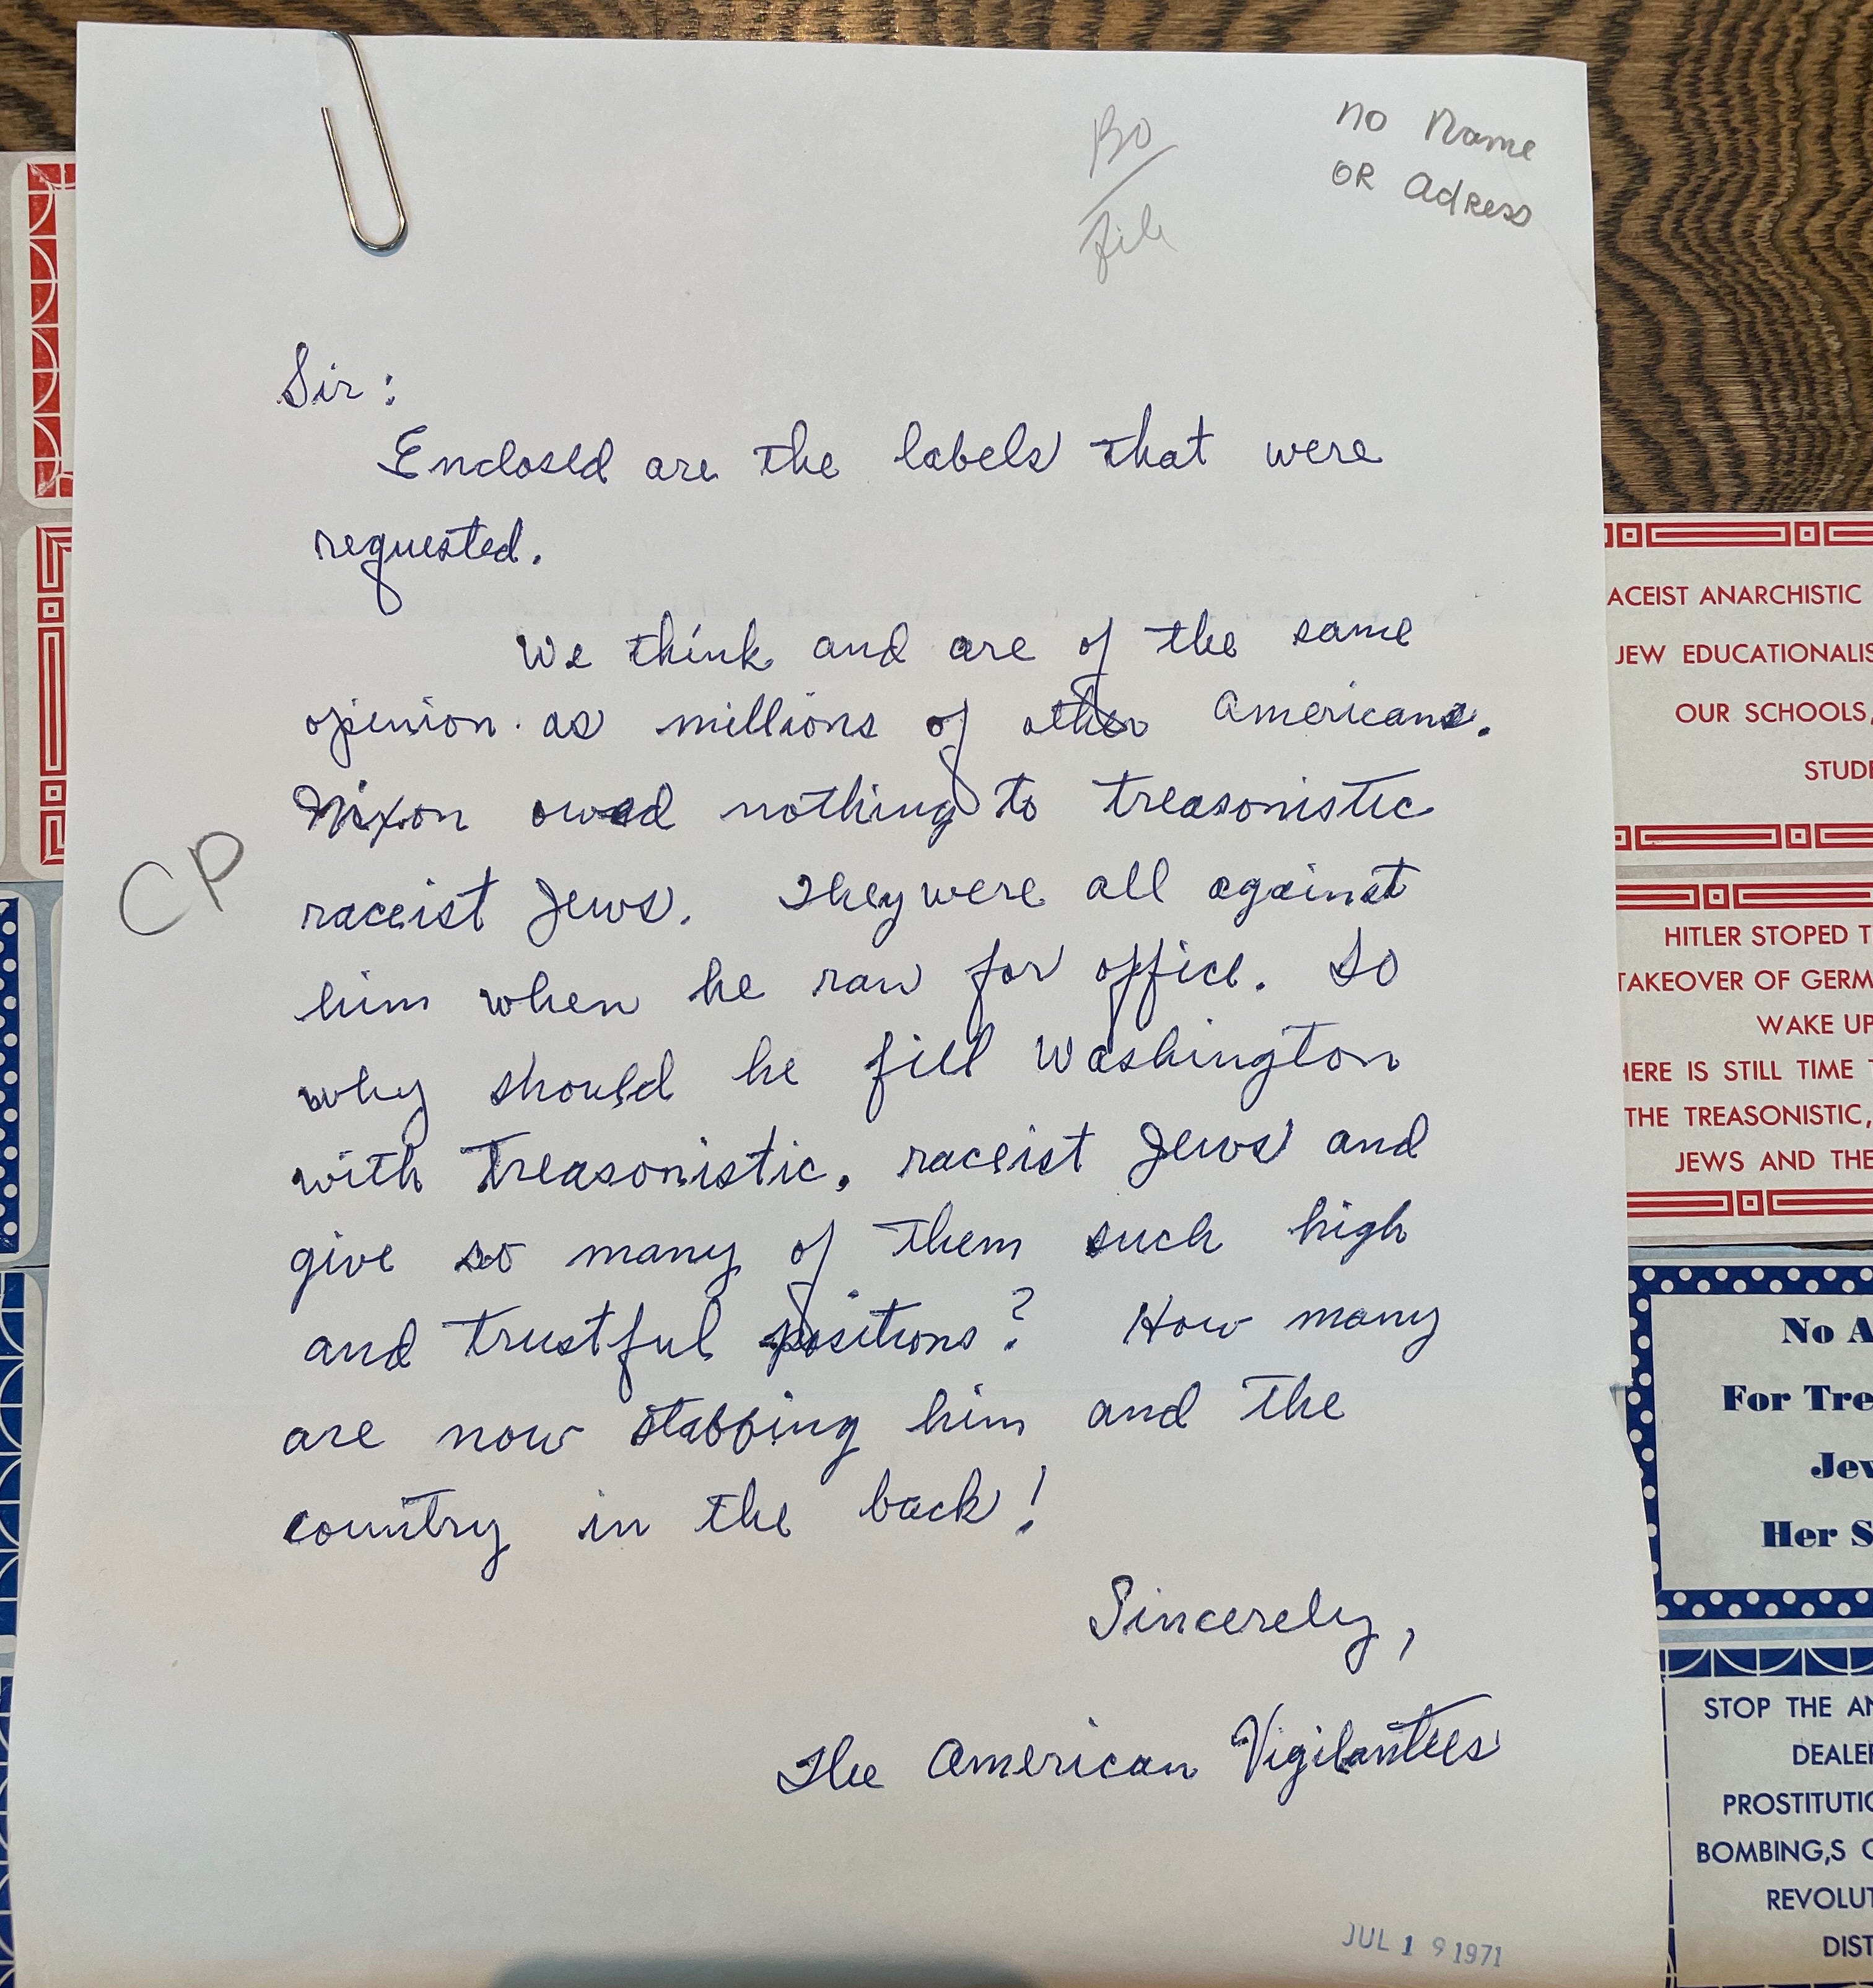 no Name
OR Adress
File
Sir:
Enclosed are the labels that were
requested.
We think and are of the same
opinion as millions of other Americans.
Nixon owed nothing to treasonistic
raceist Jews. They were all against
him when he ran for office. So
why should he fill Washington
with Treasonistic, raceist Jews and
give so many of them such high
and trustful positions? How many
are now stabbing him and the
country in the back!
Sincerely,
The American Vigilantees
CP
JUL 19 1971
ACEIST ANARCHISTIC
JEW EDUCATIONALIS
OUR SCHOOLS,
STUDE
HITLER STOPED T
TAKEOVER OF GERM
WAKE UP
HERE IS STILL TIME T
THE TREASONISTIC,
JEWS AND THE
No A
For Tre
Jew
Her S
STOP THE AN
DEALER
PROSTITUTIO
BOMBING,S O
REVOLUT
DIST